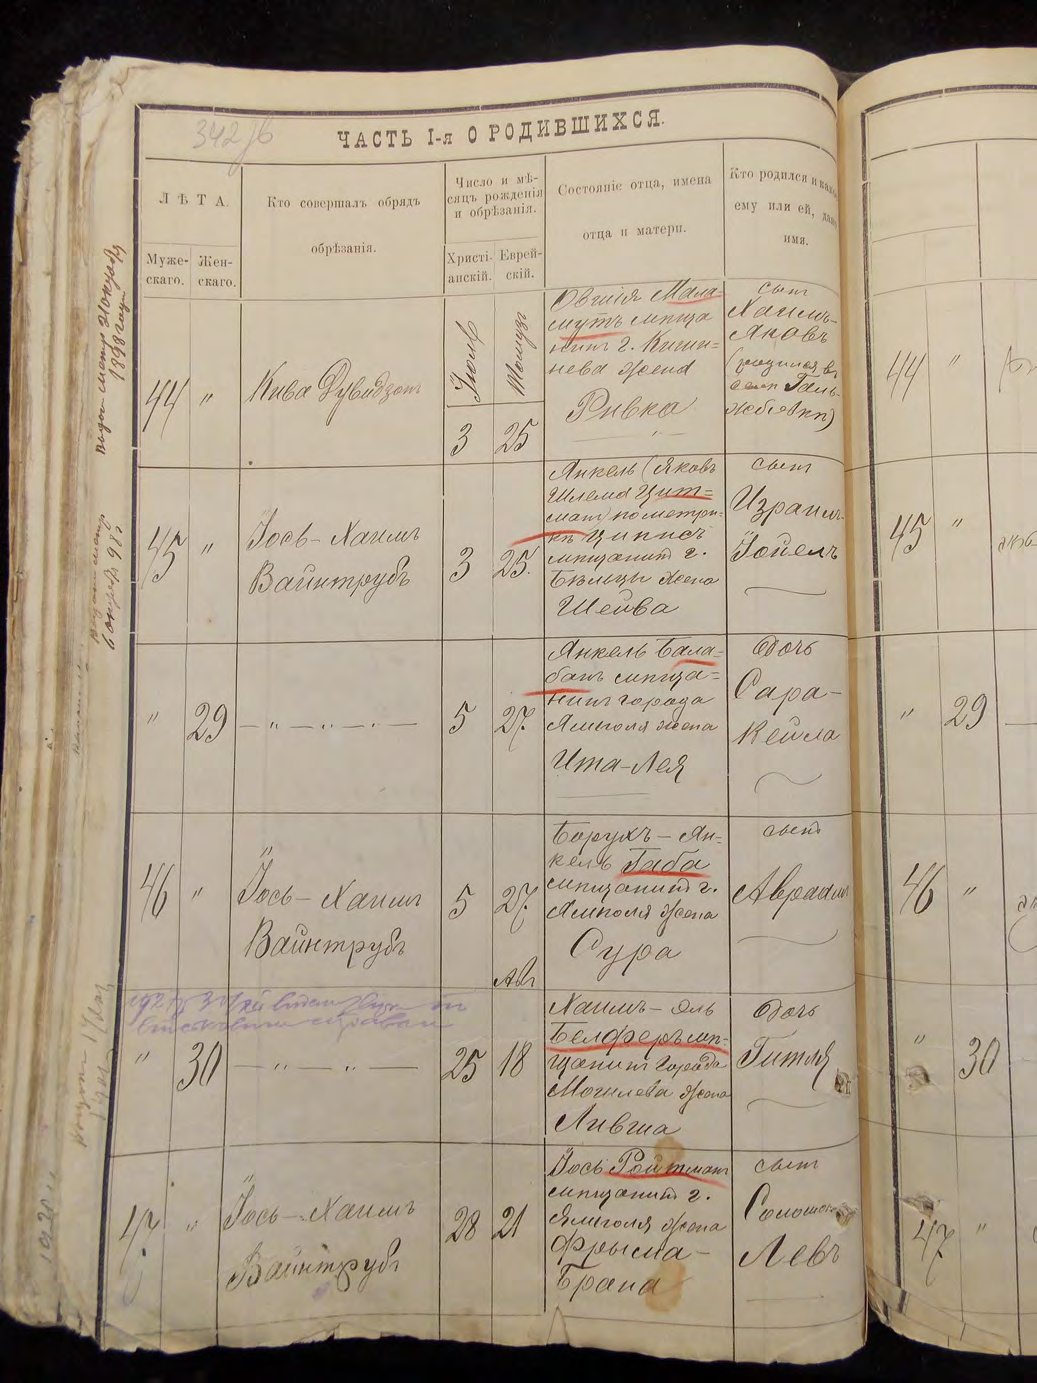 342
ЧАСТЬ I-я О РОДИВШИХСЯ.
ЛѢТА.
Муже-
скаго.
Жен-
скаго.
Кто совершалъ обрядъ
обрѣзанія.
Число и мѣ-
сяцъ рожденія
и обрѣзанія.
Христі-
анскій.
Еврей-
скій.
Состояніе отца, имена
отца и матери.
Кто родился и
ему или ей,
имя.
44
"
Кива Дувидзон
Іюль
3
25
Овшія Мала-
мутъ мѣща
нинъ г. Киши-
нева жена
Ривка
сынъ
Хаимъ-
Яковъ
(родился въ
44
"
45
"
Іось-Хаимъ
Вайнтрубъ
3
25.
Янкель (Яковъ
Шлема Цит-
ман) по метри-
кѣ Ципись
мѣщанинъ г.
Бѣльцы жена
Шейва
сынъ
Израиль
Іойель
45
"
"
29
— " — " — " —
5
27
Янкель Бала-
банъ мѣща-
нинъ города
Ямполя жена
Ита-Лея
дочь
Сара-
Кейла
"
29
46
"
Іось-Хаимъ
Вайнтрубъ
5
27
Борухъ-Ян-
кель Габа
мѣщанинъ г.
Ямполя жена
Сура
сынъ
Авраам
46
"
"
30
— " — " —
25
18
Хаимъ-Эль
Белферъ мѣ-
щанинъ города
Могилева жена
Ливша
дочь
Гитля
"
30
47
"
Іось-Хаимъ
Вайнтрубъ
28
21
Іось Ройтман
мѣщанинъ г.
Ямполя жена
Фрыма-
Брана
сынъ
Соломон
Левъ
47
"
1898 года